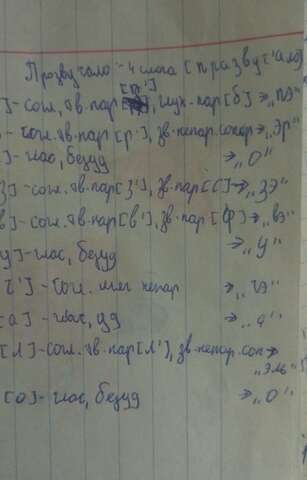 Прозвучало - 4 слога [празвуч'ало]
[п']
]-согл, тв.пар, глух.пар[б]→„пэ"
- согл. тв.пар[р'], зв.непар.сонор→„эр"
]-глас, безуд →„о"
З]-согл. тв.пар[з'], зв.пар[с]→„зэ"
в]-согл. тв.пар[в'], зв.пар[ф]→„вэ"
у]-глас, безуд →„у"
[ч']-согл. мяг непар →„чэ"
[а]-глас, уд →„а"
[л]-согл. тв.пар[л'], зв.непар.сон→
„эль"
[о]-глас, безуд →„о"